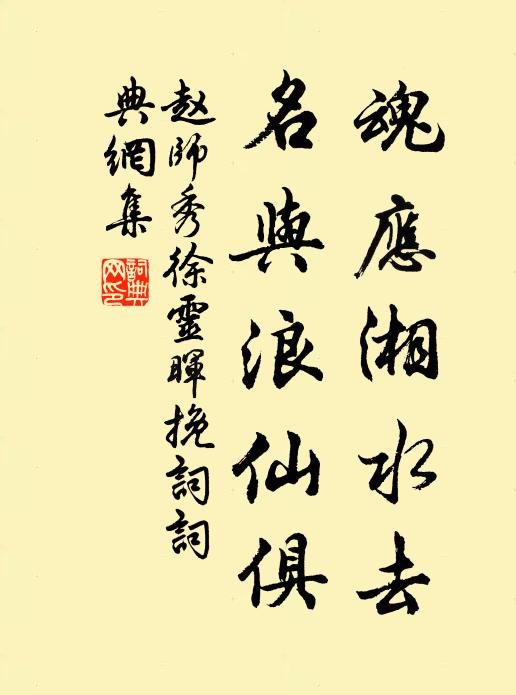 魂應湘水去
名與浪仙俱
赵師秀徐靈暉挽詞詞
典網集
詞典
网印